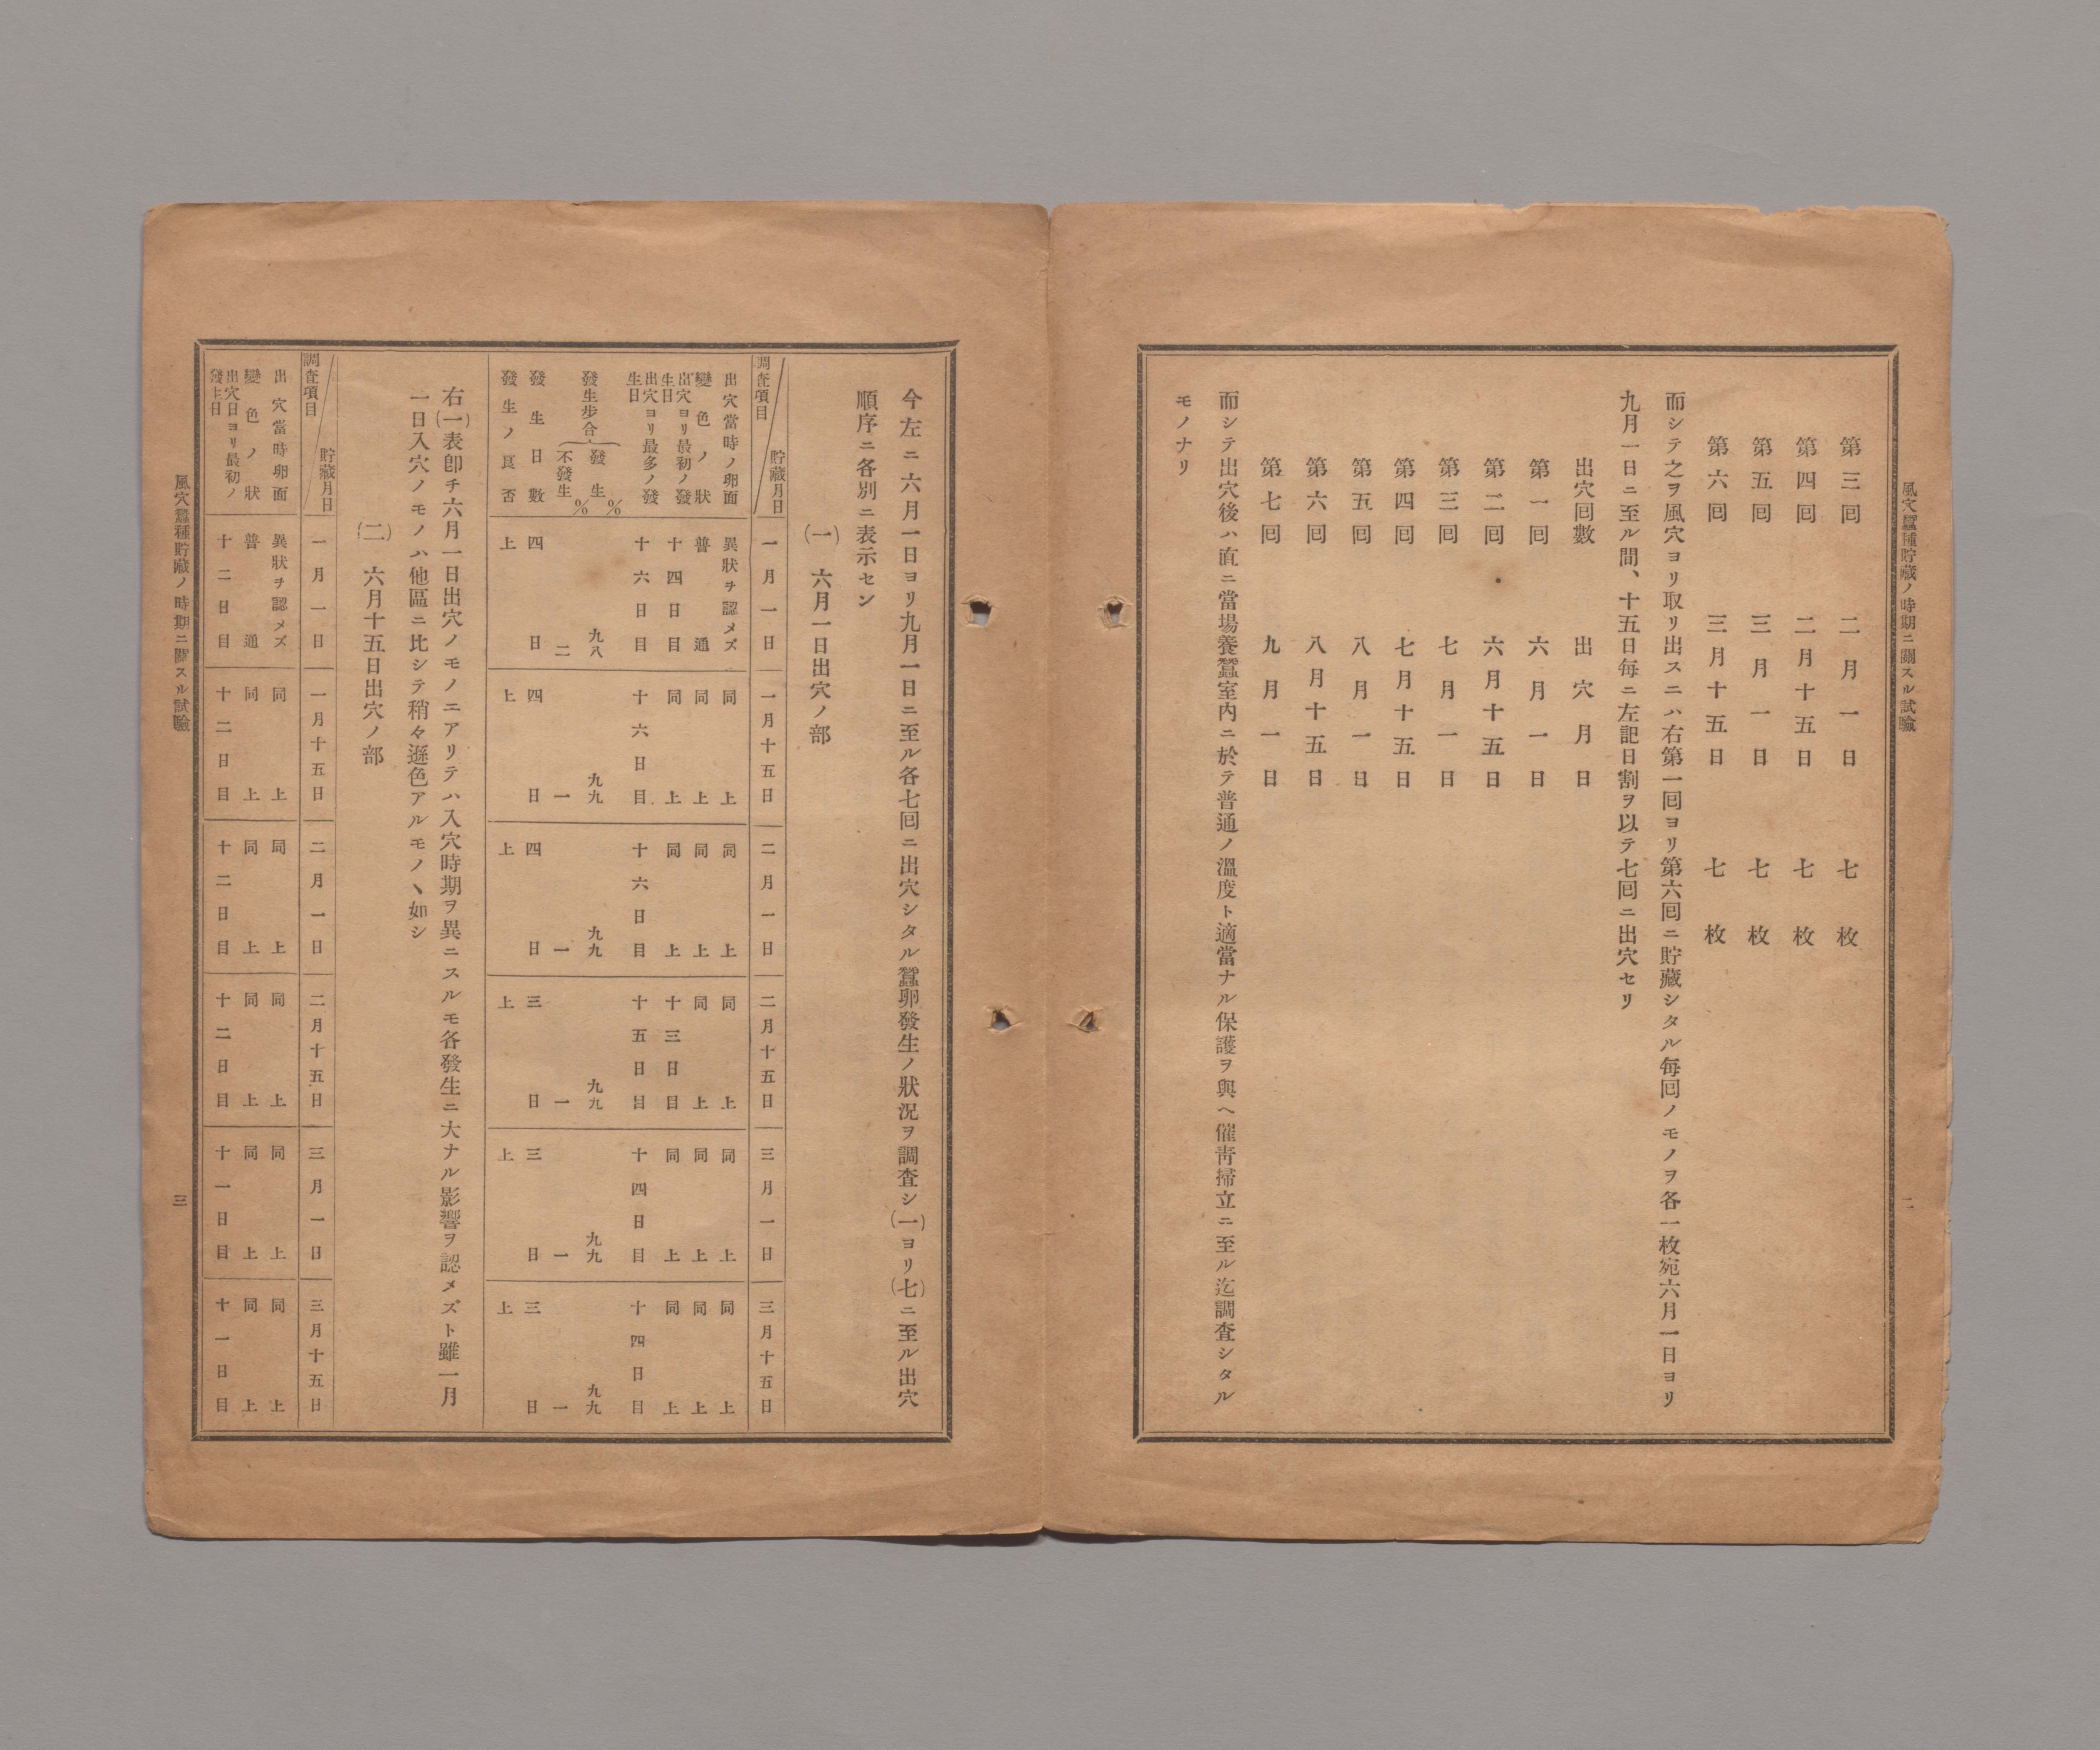 風穴蠶種貯藏ノ時期ニ關スル試驗
二
第三囘 二月一日 七枚
第四囘 二月十五日 七枚
第五囘 三月一日 七枚
第六囘 三月十五日 七枚
而シテ之ヲ風穴ヨリ取リ出スニハ右第一囘ヨリ第六囘ニ貯藏シタル每囘ノモノヲ各一枚宛六月一日ヨリ
九月一日ニ至ル間、十五日每ニ左記日割ヲ以テ七囘ニ出穴セリ
出穴囘數 出穴月日
第一囘 六月一日
第二囘 六月十五日
第三囘 七月一日
第四囘 七月十五日
第五囘 八月一日
第六囘 八月十五日
第七囘 九月一日
而シテ出穴後ハ直ニ當場養蠶室内ニ於テ普通ノ溫度ト適當ナル保護ヲ與ヘ催靑掃立ニ至ル迄調査シタル
モノナリ
今左ニ六月一日ヨリ九月一日ニ至ル各七囘ニ出穴シタル蠶卵發生ノ狀況ヲ調査シ(一)ヨリ(七)ニ至ル出穴
順序ニ各別ニ表示セン
(一) 六月一日出穴ノ部
調査項目 貯藏月日 一月一日 一月十五日 二月一日 二月十五日 三月一日 三月十五日
出穴當時ノ卵面 異狀ヲ認メズ 同上 同上 同上 同上 同上
變色ノ狀 普通 同上 同上 同上 同上 同上
出穴ヨリ最初ノ發生日 十四日目 同上 同上 十三日目 同上 同上
出穴ヨリ最多ノ發生日 十六日目 十六日目 十六日目 十五日目 十四日目 十四日目
發生步合 發生% 九八 九九 九九 九九 九九 九九
不發生% 二 一 一 一 一 一
發生日數 四日 四日 四日 三日 三日 三日
發生ノ良否 上 上 上 上 上 上
右(一)表卽チ六月一日出穴ノモノニアリテハ入穴時期ヲ異ニスルモ各發生ニ大ナル影響ヲ認メズト雖一月
一日入穴ノモノハ他區ニ比シテ稍々遜色アルモノヽ如シ
(二) 六月十五日出穴ノ部
調査項目 貯藏月日 一月一日 一月十五日 二月一日 二月十五日 三月一日 三月十五日
出穴當時卵面 異狀ヲ認メズ 同上 同上 同上 同上 同上
變色ノ狀 普通 同上 同上 同上 同上 同上
出穴日ヨリ最初ノ發生日 十二日目 十二日目 十二日目 十二日目 十一日目 十一日目
風穴蠶種貯藏ノ時期ニ關スル試驗
三